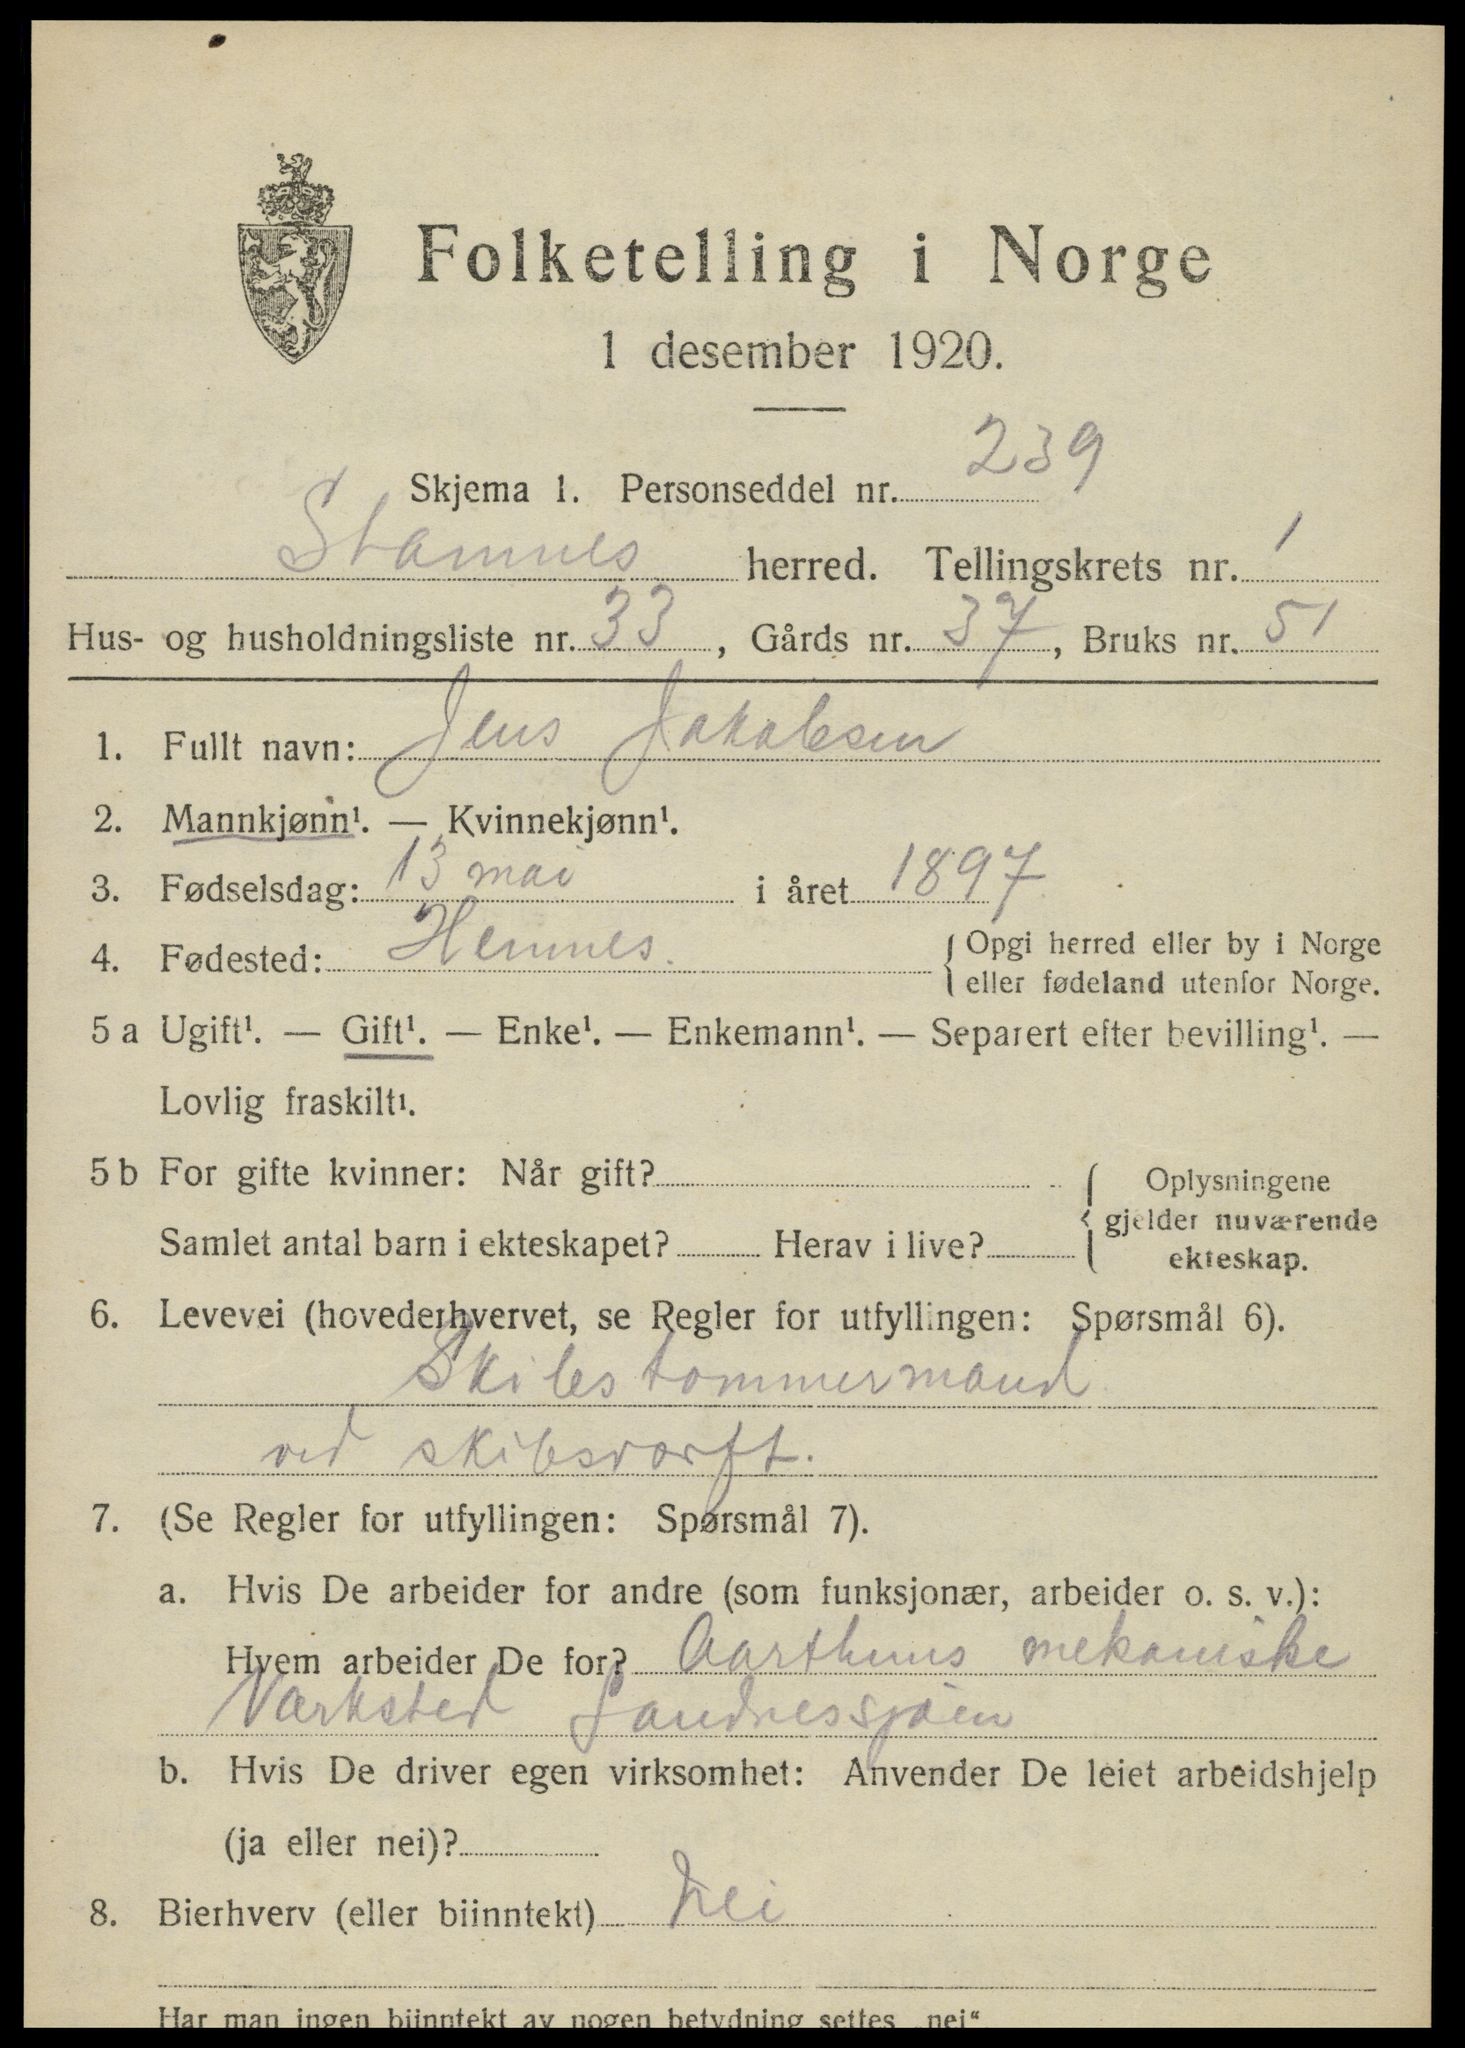 Folketelling i Norge
1 desember 1920.
Skjema 1. Personseddel nr. 239
Stamnes herred. Tellingskrets nr. 1
Hus- og husholdningsliste nr. 33, Gårds nr. 37, Bruks nr. 51
1. Fullt navn: Jens Jakobsen
2. Mannkjønn¹. — Kvinnekjønn¹.
3. Fødselsdag: 13 mai i året 1897
4. Fødested: Hemnes. { Opgi herred eller by i Norge
eller fødeland utenfor Norge.
5 a Ugift¹. — Gift¹. — Enke¹. — Enkemann¹. — Separert efter bevilling¹. —
Lovlig fraskilt¹.
5 b For gifte kvinner: Når gift? { Oplysningene
gjelder nuværende
Samlet antal barn i ekteskapet? Herav i live?
ekteskap.
6. Levevei (hovederhvervet, se Regler for utfyllingen: Spørsmål 6).
Skibstømmermand
ved skibsværft.
7. (Se Regler for utfyllingen: Spørsmål 7).
a. Hvis De arbeider for andre (som funksjonær, arbeider o. s. v.):
Hvem arbeider De for? Aarthuns mekaniske
Værksted Sandnessjøen
b. Hvis De driver egen virksomhet: Anvender De leiet arbeidshjelp
(ja eller nei)?
8. Bierhverv (eller biinntekt) Nei
Har man ingen biinntekt av nogen betydning settes „nei“